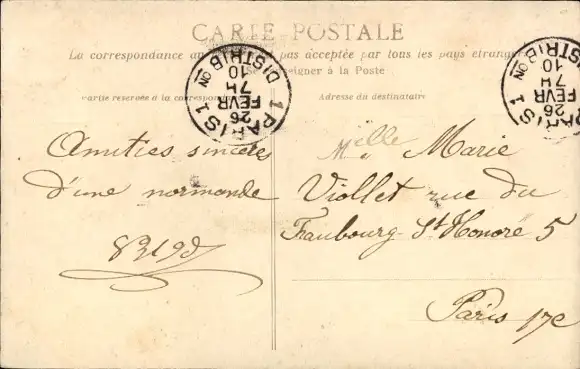 CARTE POSTALE
La correspondance au pas acceptée par tous les pays étrangers
se renseigner à la Poste
Partie réservée à la correspondance
Adresse du destinataire
PARIS 1 DISTRIBON
7H 10
26 FEVR
PARIS 1 DISTRIBON
7H 10
26 FEVR
Amitiés sincères
d'une normande
Melle Marie
Viollet rue du
Faubourg St Honoré 5
Paris